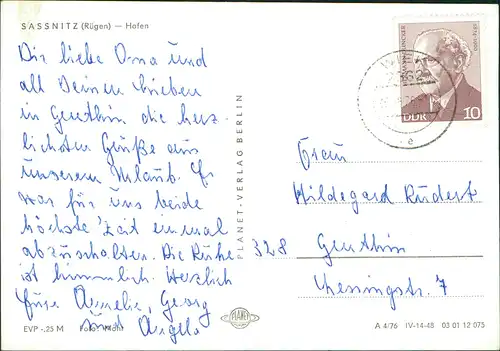 SASSNITZ (Rügen) — Hafen
Dir liebe Oma und
all Deinen Lieben
in Genthin die herz-
lichsten Grüße aus
unserem Urlaub. Es
war für uns beide
höchste Zeit einmal
abzuschalten. Die Ruhe
ist himmlisch. Herzlich
Eure Amelie, Georg
und Angela
EVP -,25 M Foto:
PLANET-VERLAG BERLIN
PLANET
DDR 10
Frau
Hildegard Rudert
328 Genthin
7
A 4/76 IV-14-48 03 01 12 075